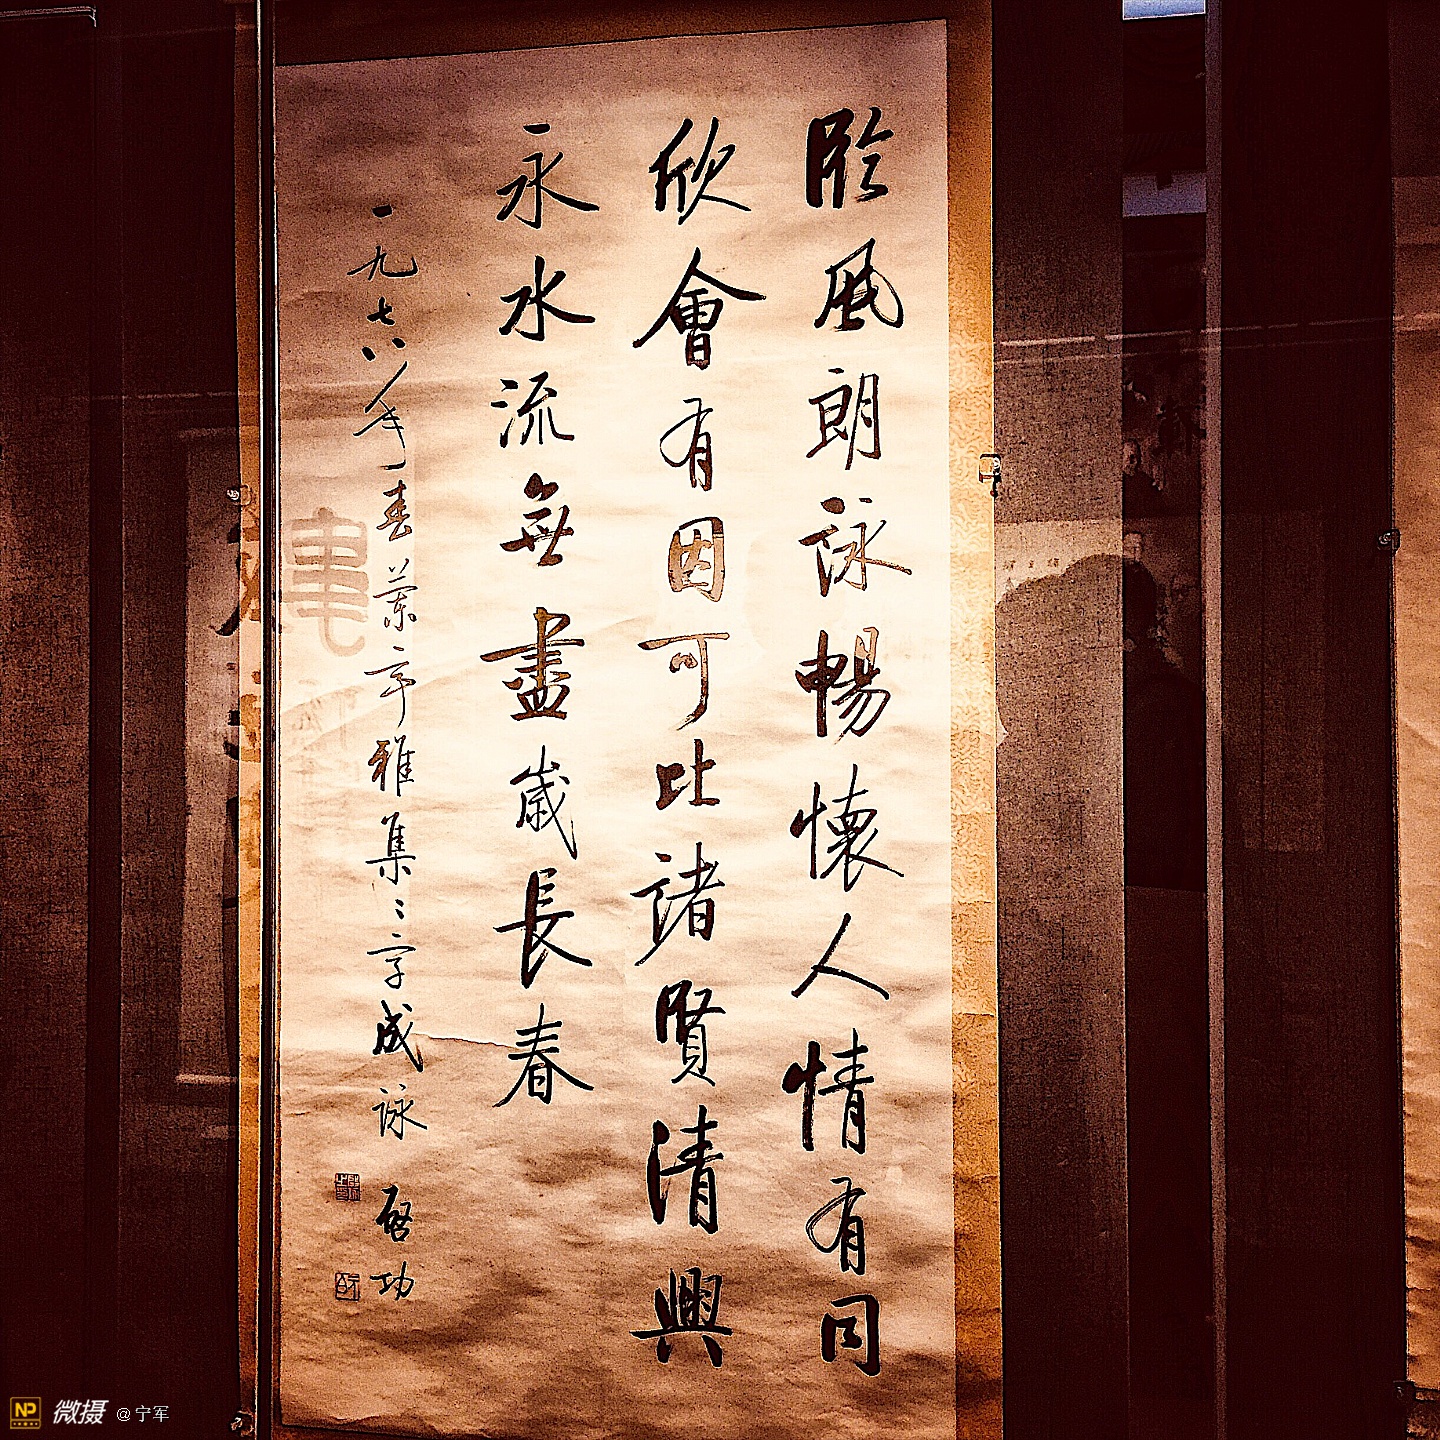 臨風朗詠暢懷人情有同
欣會有因可比諸賢清興
永水流無盡歲長春
一九七八年春蘭亭雅集〻字成詠
啓功
微摄 @宁军
NP